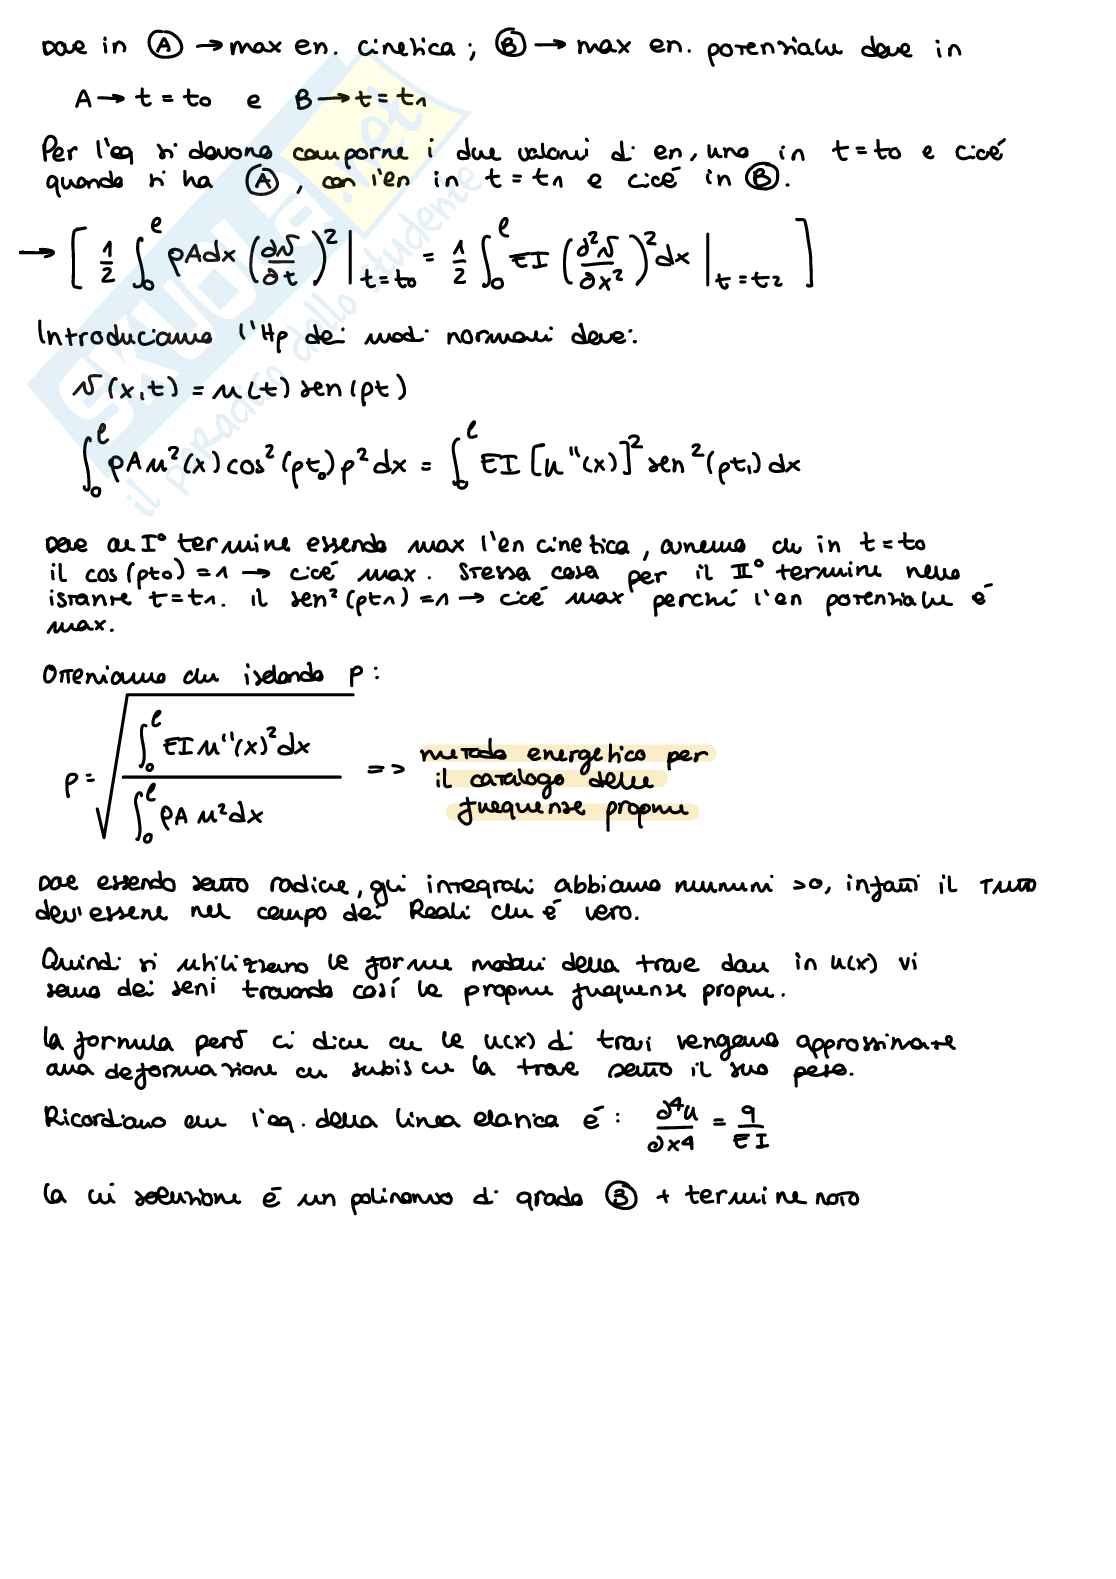 Dove in Ⓐ → max en. cinetica ; Ⓑ → max en. potenziale dove in
A → t = t₀ e B → t = t₁
Per l'eq si devono comporre i due valori di en, uno in t = t₀ e cioé
quando si ha Ⓐ, con l'en in t = t₁ e cioé in Ⓑ.
→ [ 1/2 ∫₀^ℓ ρAdx (∂v/∂t)² |_{t=t₀} = 1/2 ∫₀^ℓ EI (∂²v/∂x²)² dx |_{t=t₂} ]
Introduciamo l'Hp dei modi normali dove:
v(x,t) = u(t) sen(pt)
∫₀^ℓ ρA u²(x) cos²(pt₀) p² dx = ∫₀^ℓ EI [u''(x)]² sen²(pt₁) dx
Dove al I° termine essendo max l'en cinetica, avremo che in t = t₀
il cos(pt₀) = 1 → cioé max. Stessa cosa per il II° termine nello
istante t = t₁. il sen²(pt₁) = 1 → cioé max perché l'en potenziale é
max.
Otteniamo che isolando p:
p = √( ∫₀^ℓ EI u''(x)² dx / ∫₀^ℓ ρA u² dx ) => metodo energetico per
il catalogo delle
frequenze proprie
Dove essendo sotto radice, gli integrali abbiamo numeri >0, infatti il tutto
dev'essere nel campo dei Reali che é vero.
Quindi si utilizzano le forme modali della trave dove in u(x) vi
sono dei seni trovando così le proprie frequenze proprie.
la formula però ci dice che le u(x) di travi vengono approssimate
alla deformazione che subisce la trave sotto il suo peso.
Ricordiamo che l'eq. della linea elastica é : ∂⁴u/∂x⁴ = q/EI
la cui soluzione é un polinomio di grado ③ + termine noto
SKUOLA.net
il paradiso dello studente